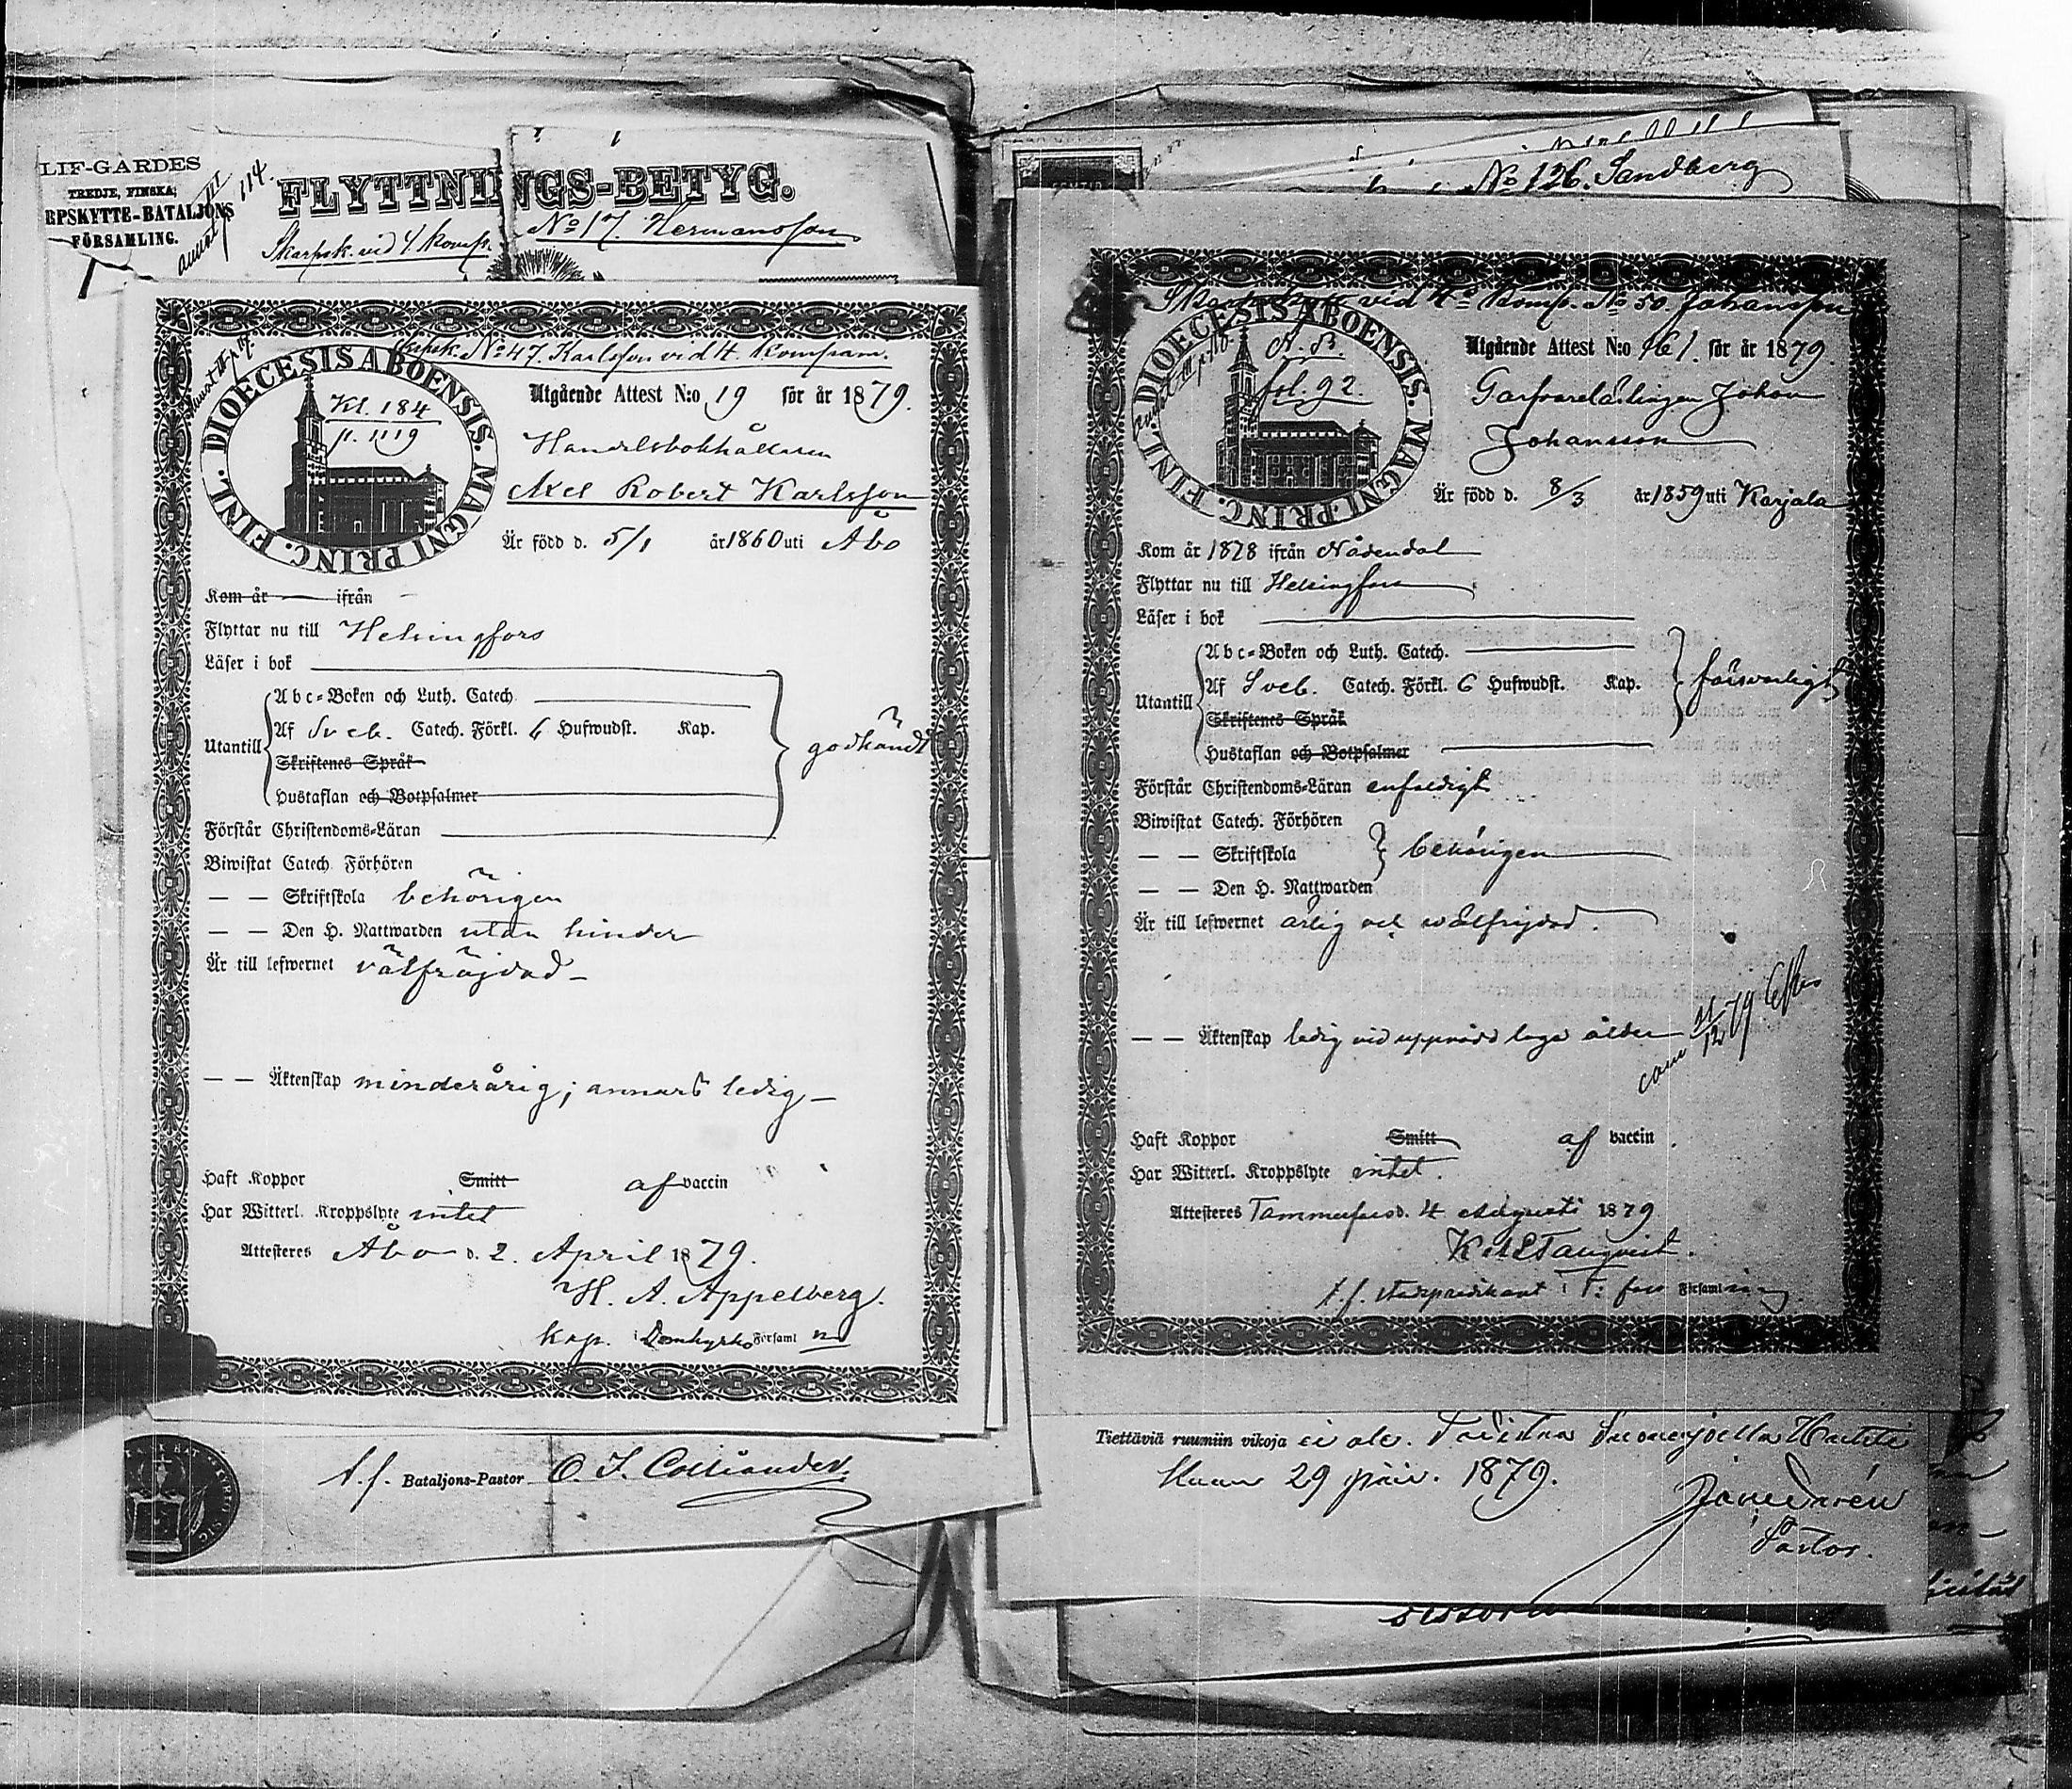 LIF-GARDES
TREDJE, FINSKA,
RPSKYTTE-BATALJONS
FÖRSAMLING.
114.
FLYTTNINGS-BETYG.
Skarpsk. vid 4 komp.
No 17. Hermansson
Skarpsk. No 47. Karlsson vid 4. Kompani.
DIOECESIS ABOENSIS. MAGNI PRINC. FINL.
Kl. 184
p. 1119
Utgående Attest N:o 19 för år 1879.
Handelsbokhållaren
Axel Robert Karlsson
Är född d. 5/1 år 1860 uti Åbo
Kom år — ifrån —
Flyttar nu till Helsingfors
Läser i bok
Abc-Boken och Luth. Catech.
Utantill Af Sveb. Catech. Förkl. 6 Hufwudst. Kap.
Skriftenes Språk
Hustaflan och Botpsalmer
godkändt
Förstår Christendoms-Läran
Biwistat Catech. Förhören
— — Skriftskola behörigen
— — Den H. Nattwarden utan hinder
Är till lefwernet välfräjdad —
— — Äktenskap minderårig; annars ledig —
Haft Koppor Smitt af vaccin
Har Witterl. Kroppslyte intet
Attesteres Åbo d. 2. April 1879.
H. A. Appelberg.
Kap. i Domkyrko Församl n
t.f. Bataljons-Pastor O. I. Colliander.
No 126. Sandberg
Skarpskytt vid 4e Komp. No 50 Johansson
DIOECESIS ABOENSIS. MAGNI PRINC. FINL.
fol. 92.
Utgående Attest N:o 161. för år 1879.
Garfvarelärlingen Johan
Johansson
Är född d. 8/3 år 1859 uti Karjala
Kom år 1878 ifrån Nådendal
Flyttar nu till Helsingfors
Läser i bok
Abc-Boken och Luth. Catech.
Utantill Af Sveb. Catech. Förkl. 6 Hufwudst. Kap.
Skriftenes Språk
Hustaflan och Botpsalmer
försvarligt
Förstår Christendoms-Läran enfaldigt
Biwistat Catech. Förhören
— — Skriftskola behörigen
— — Den H. Nattwarden
Är till lefwernet ärlig och wälfrejdad.
— — Äktenskap ledig vid uppnådd laga ålder
Haft Koppor Smitt af vaccin
Har Witterl. Kroppslyte intet.
Attesteres Tammerfors d. 4 Augusti 1879
t.f. stadspredikant i T: fors Församling.
Tiettäviä ruumiin vikoja ei ole. Todistaa Suonenjoella Huhti
Kuun 29 päiv. 1879.
Pastor.